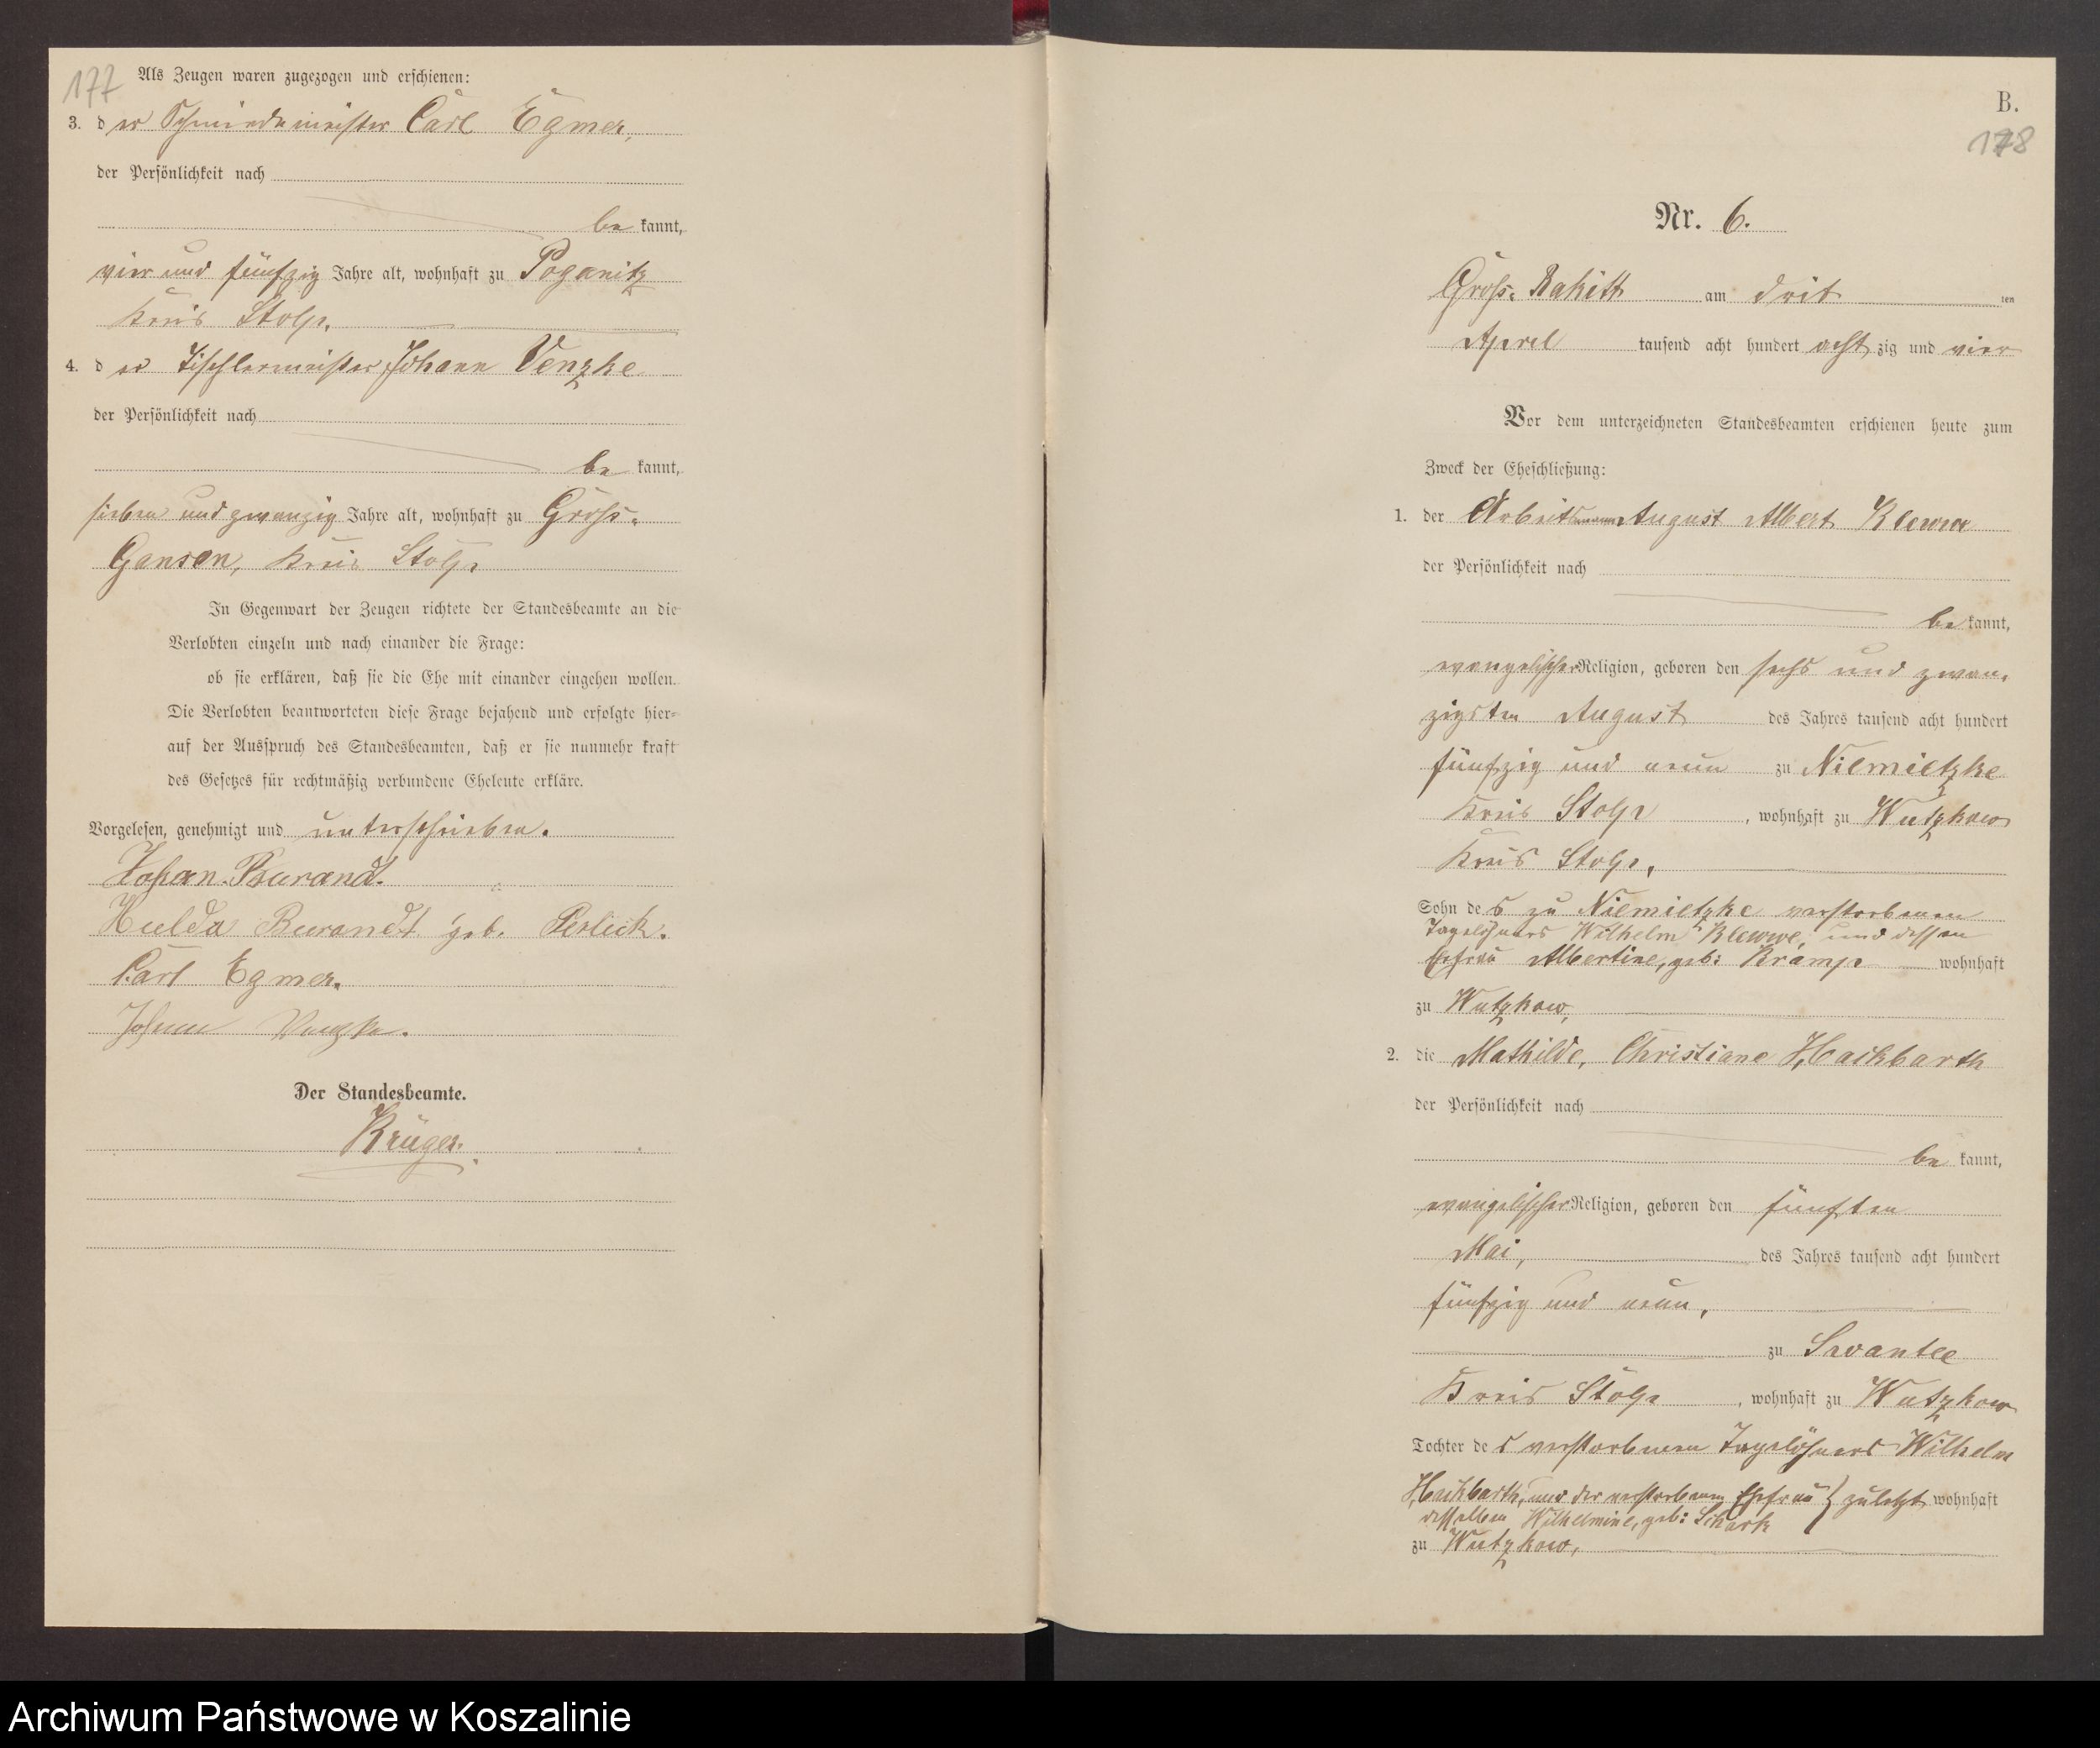 177
Als Zeugen waren zugezogen und erschienen:
3. d er Schmiedemeister Carl Egmer,
der Persönlichkeit nach
be kannt,
vier und fünfzig Jahre alt, wohnhaft zu Poganitz
Kreis Stolp.
4. d er Tischlermeister Johann Venzke
der Persönlichkeit nach
be kannt,
sieben und zwanzig Jahre alt, wohnhaft zu Gross-
Gansen, Kreis Stolp
In Gegenwart der Zeugen richtete der Standesbeamte an die
Verlobten einzeln und nach einander die Frage:
ob sie erklären, daß sie die Ehe mit einander eingehen wollen.
Die Verlobten beantworteten diese Frage bejahend und erfolgte hier-
auf der Ausspruch des Standesbeamten, daß er sie nunmehr kraft
des Gesetzes für rechtmäßig verbundene Eheleute erkläre.
Vorgelesen, genehmigt und unterschrieben.
Johan Burandt.
Hulda Burandt geb. Perlick.
Carl Egmer.
Johann Venzke.
Der Standesbeamte.
Krüger.
B.
178
Nr. 6.
Gross-Rakitt am drit ten
April tausend acht hundert acht zig und vier
Vor dem unterzeichneten Standesbeamten erschienen heute zum
Zweck der Eheschließung:
1. der Arbeitsmann August Albert Klewe
der Persönlichkeit nach
be kannt,
evangelischer Religion, geboren den sechs und zwan-
zigsten August des Jahres tausend acht hundert
fünfzig und neun zu Niemietzke
Kreis Stolp, wohnhaft zu Wutzkow
Kreis Stolp,
Sohn de s zu Niemietzke verstorbenen
Tagelöhners Wilhelm Klewwe, und dessen
Ehefrau Albertine, geb: Kramp wohnhaft
zu Wutzkow,
2. die Mathilde, Christiane Hackbarth
der Persönlichkeit nach
be kannt,
evangelischer Religion, geboren den fünften
Mai, des Jahres tausend acht hundert
fünfzig und neun,
zu Swantee
Kreis Stolp, wohnhaft zu Wutzkow
Tochter de s verstorbenen Tagelöhners Wilhelm
Hackbarth, und der verstorbenen Ehefrau } zuletzt wohnhaft
desselben Wilhelmine, geb: Schark
zu Wutzkow,
Archiwum Państwowe w Koszalinie